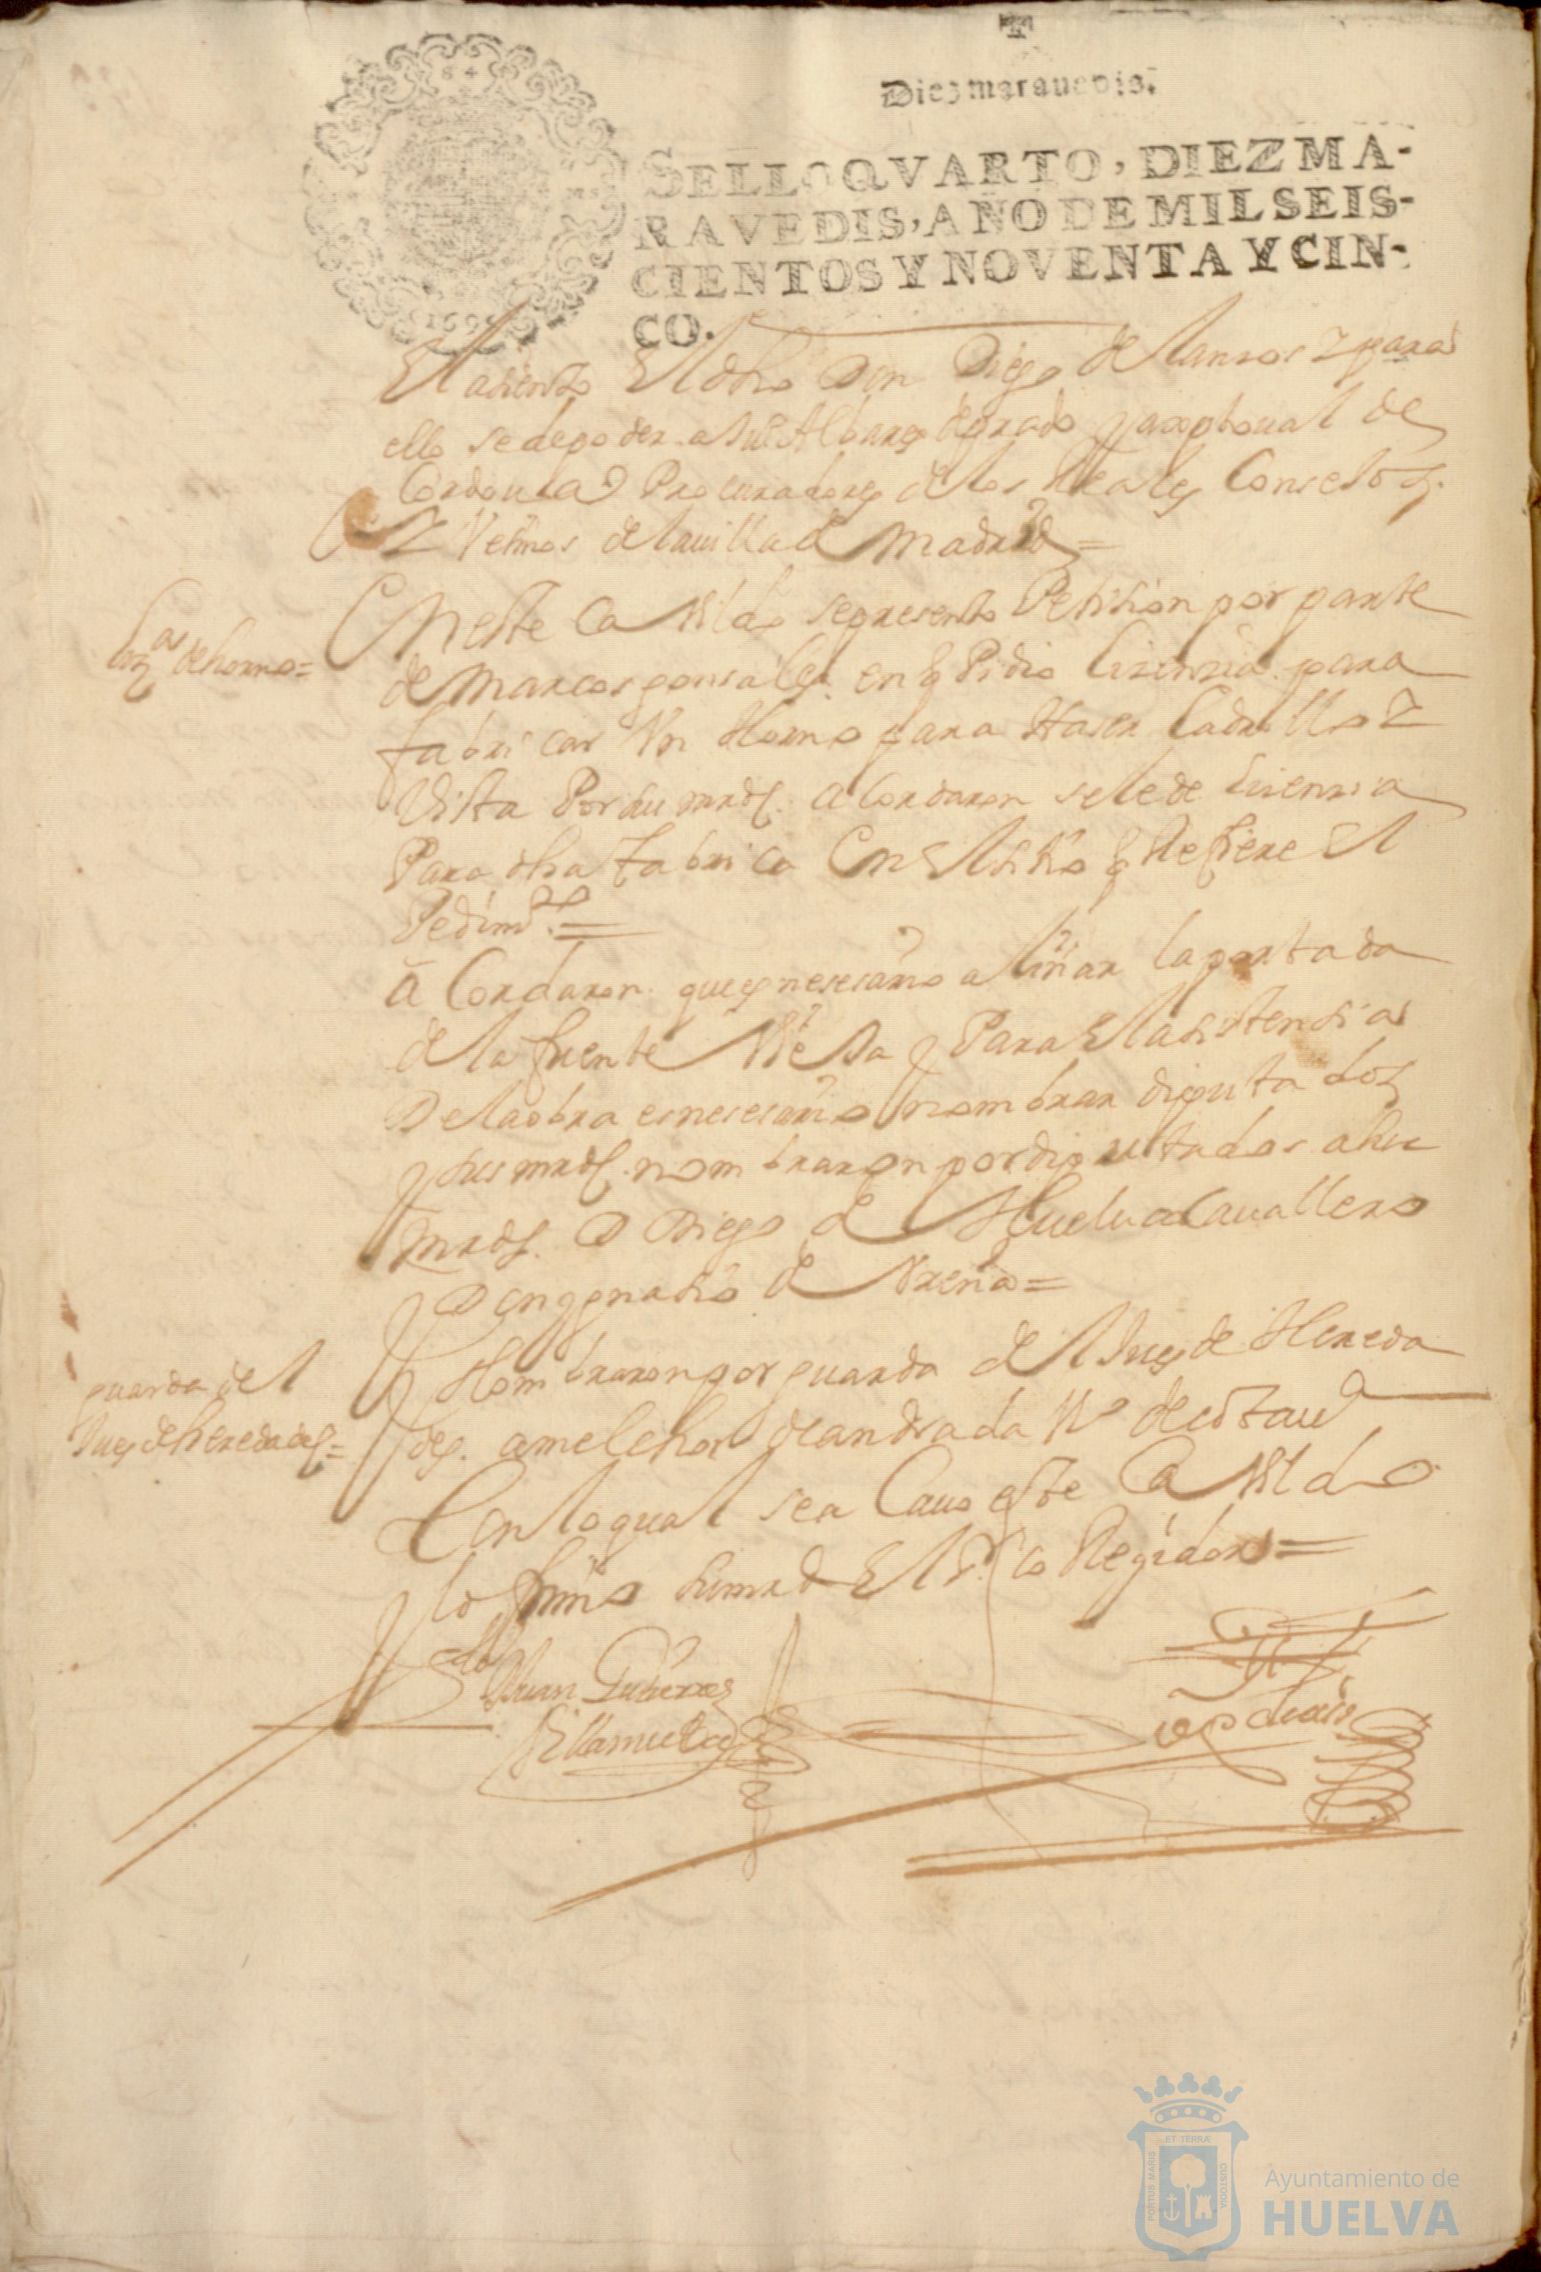 Diez maravedis.
SELLO QVARTO, DIEZ MA-
RAVEDIS, AÑO DE MIL SEIS-
CIENTOS Y NOVENTA Y CIN-
CO.
1695
El asiento El dho Don Diego de lansos y para
ello se de poder a Juº Albares de prado y a xptoual de
Cordoua Procuradores de los Reales Consejos
Y Veºinos de la uilla de Madrid =
lizª de horno =
En este Cavildo se presento Petision por parte
de Marcos gonsales en q Pidio lisensia para
fabricar Vn Horno para Haser Ladrillo Y
Vista Por sus mrds. acordaron se le de lisensia
Para dha fabrica En El sitio q Refiere El
Pedimtº =
acordaron que es nesesario aliñar la portada
de la fuente Vieja y Para El asistensia
De la obra es nesesario nombrar diputados
y sus mrds. nombraron por diputados a sus
mrds. D Diego de Huelua Cauallero
y D ygnasio de Vreña =
guarda del
Jues de heredades =
Y Nombraron por guarda del Jues de Hereda
des. a melchor de andrada Vº de esta uª
Con lo qual se a Cauo este Cavildo
y lo firmo su mrd El Sr. Corregidor =
Ldo Juan Gutierres
Villamediana
PORTUS MARIS
ET TERRÆ
CUSTODIA
Ayuntamiento de
HUELVA